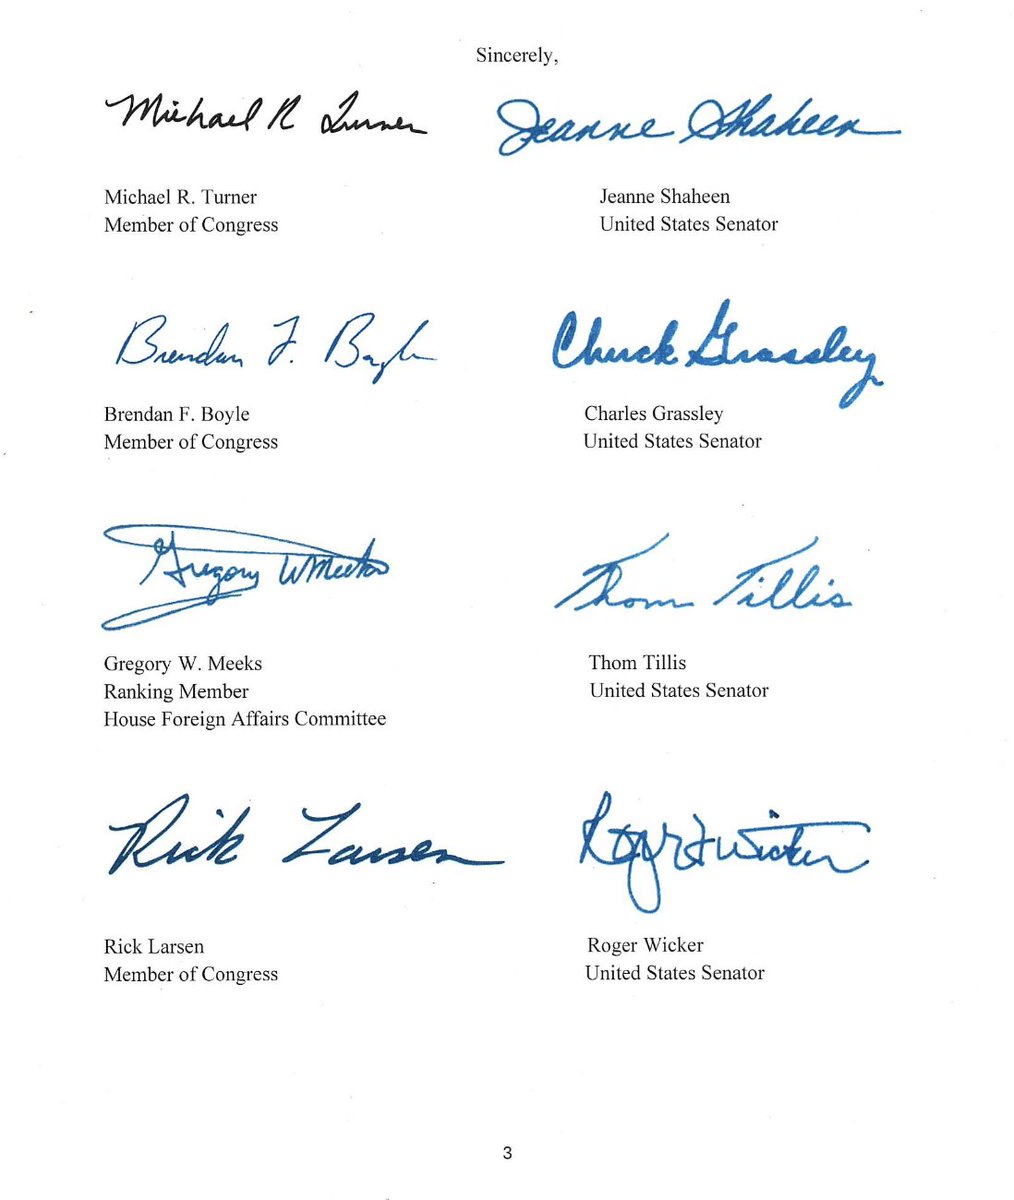 Sincerely,
Michael R Turner
Jeanne Shaheen
Michael R. Turner
Member of Congress
Jeanne Shaheen
United States Senator
Brendan F. Boyle
Chuck Grassley
Brendan F. Boyle
Member of Congress
Charles Grassley
United States Senator
Gregory W Meeks
Thom Tillis
Gregory W. Meeks
Ranking Member
House Foreign Affairs Committee
Thom Tillis
United States Senator
Rick Larsen
Roger F Wicker
Rick Larsen
Member of Congress
Roger Wicker
United States Senator
3